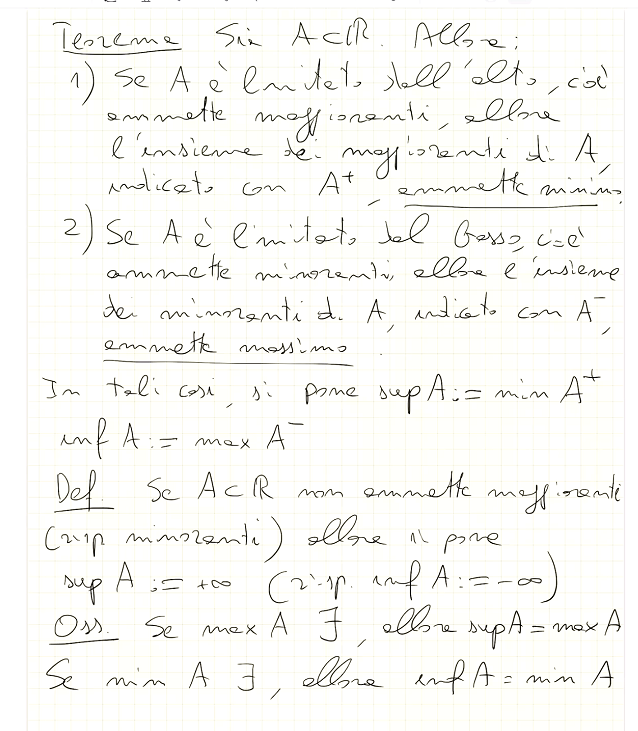 Teorema Sia A⊂ℝ. Allora:
1) Se A è limitato dall'alto, cioè
ammette maggioranti, allora
l'insieme dei maggioranti di A,
indicato con A⁺, ammette minimo
2) Se A è limitato dal basso, cioè
ammette minoranti, allora l'insieme
dei minoranti di A, indicato con A⁻,
ammette massimo.
In tali casi, si pone sup A := min A⁺
inf A := max A⁻
Def. Se A⊂ℝ non ammette maggioranti
(risp minoranti) allora si pone
sup A := +∞ (risp. inf A := -∞)
Oss. Se max A ∃, allora sup A = max A
Se min A ∃, allora inf A = min A